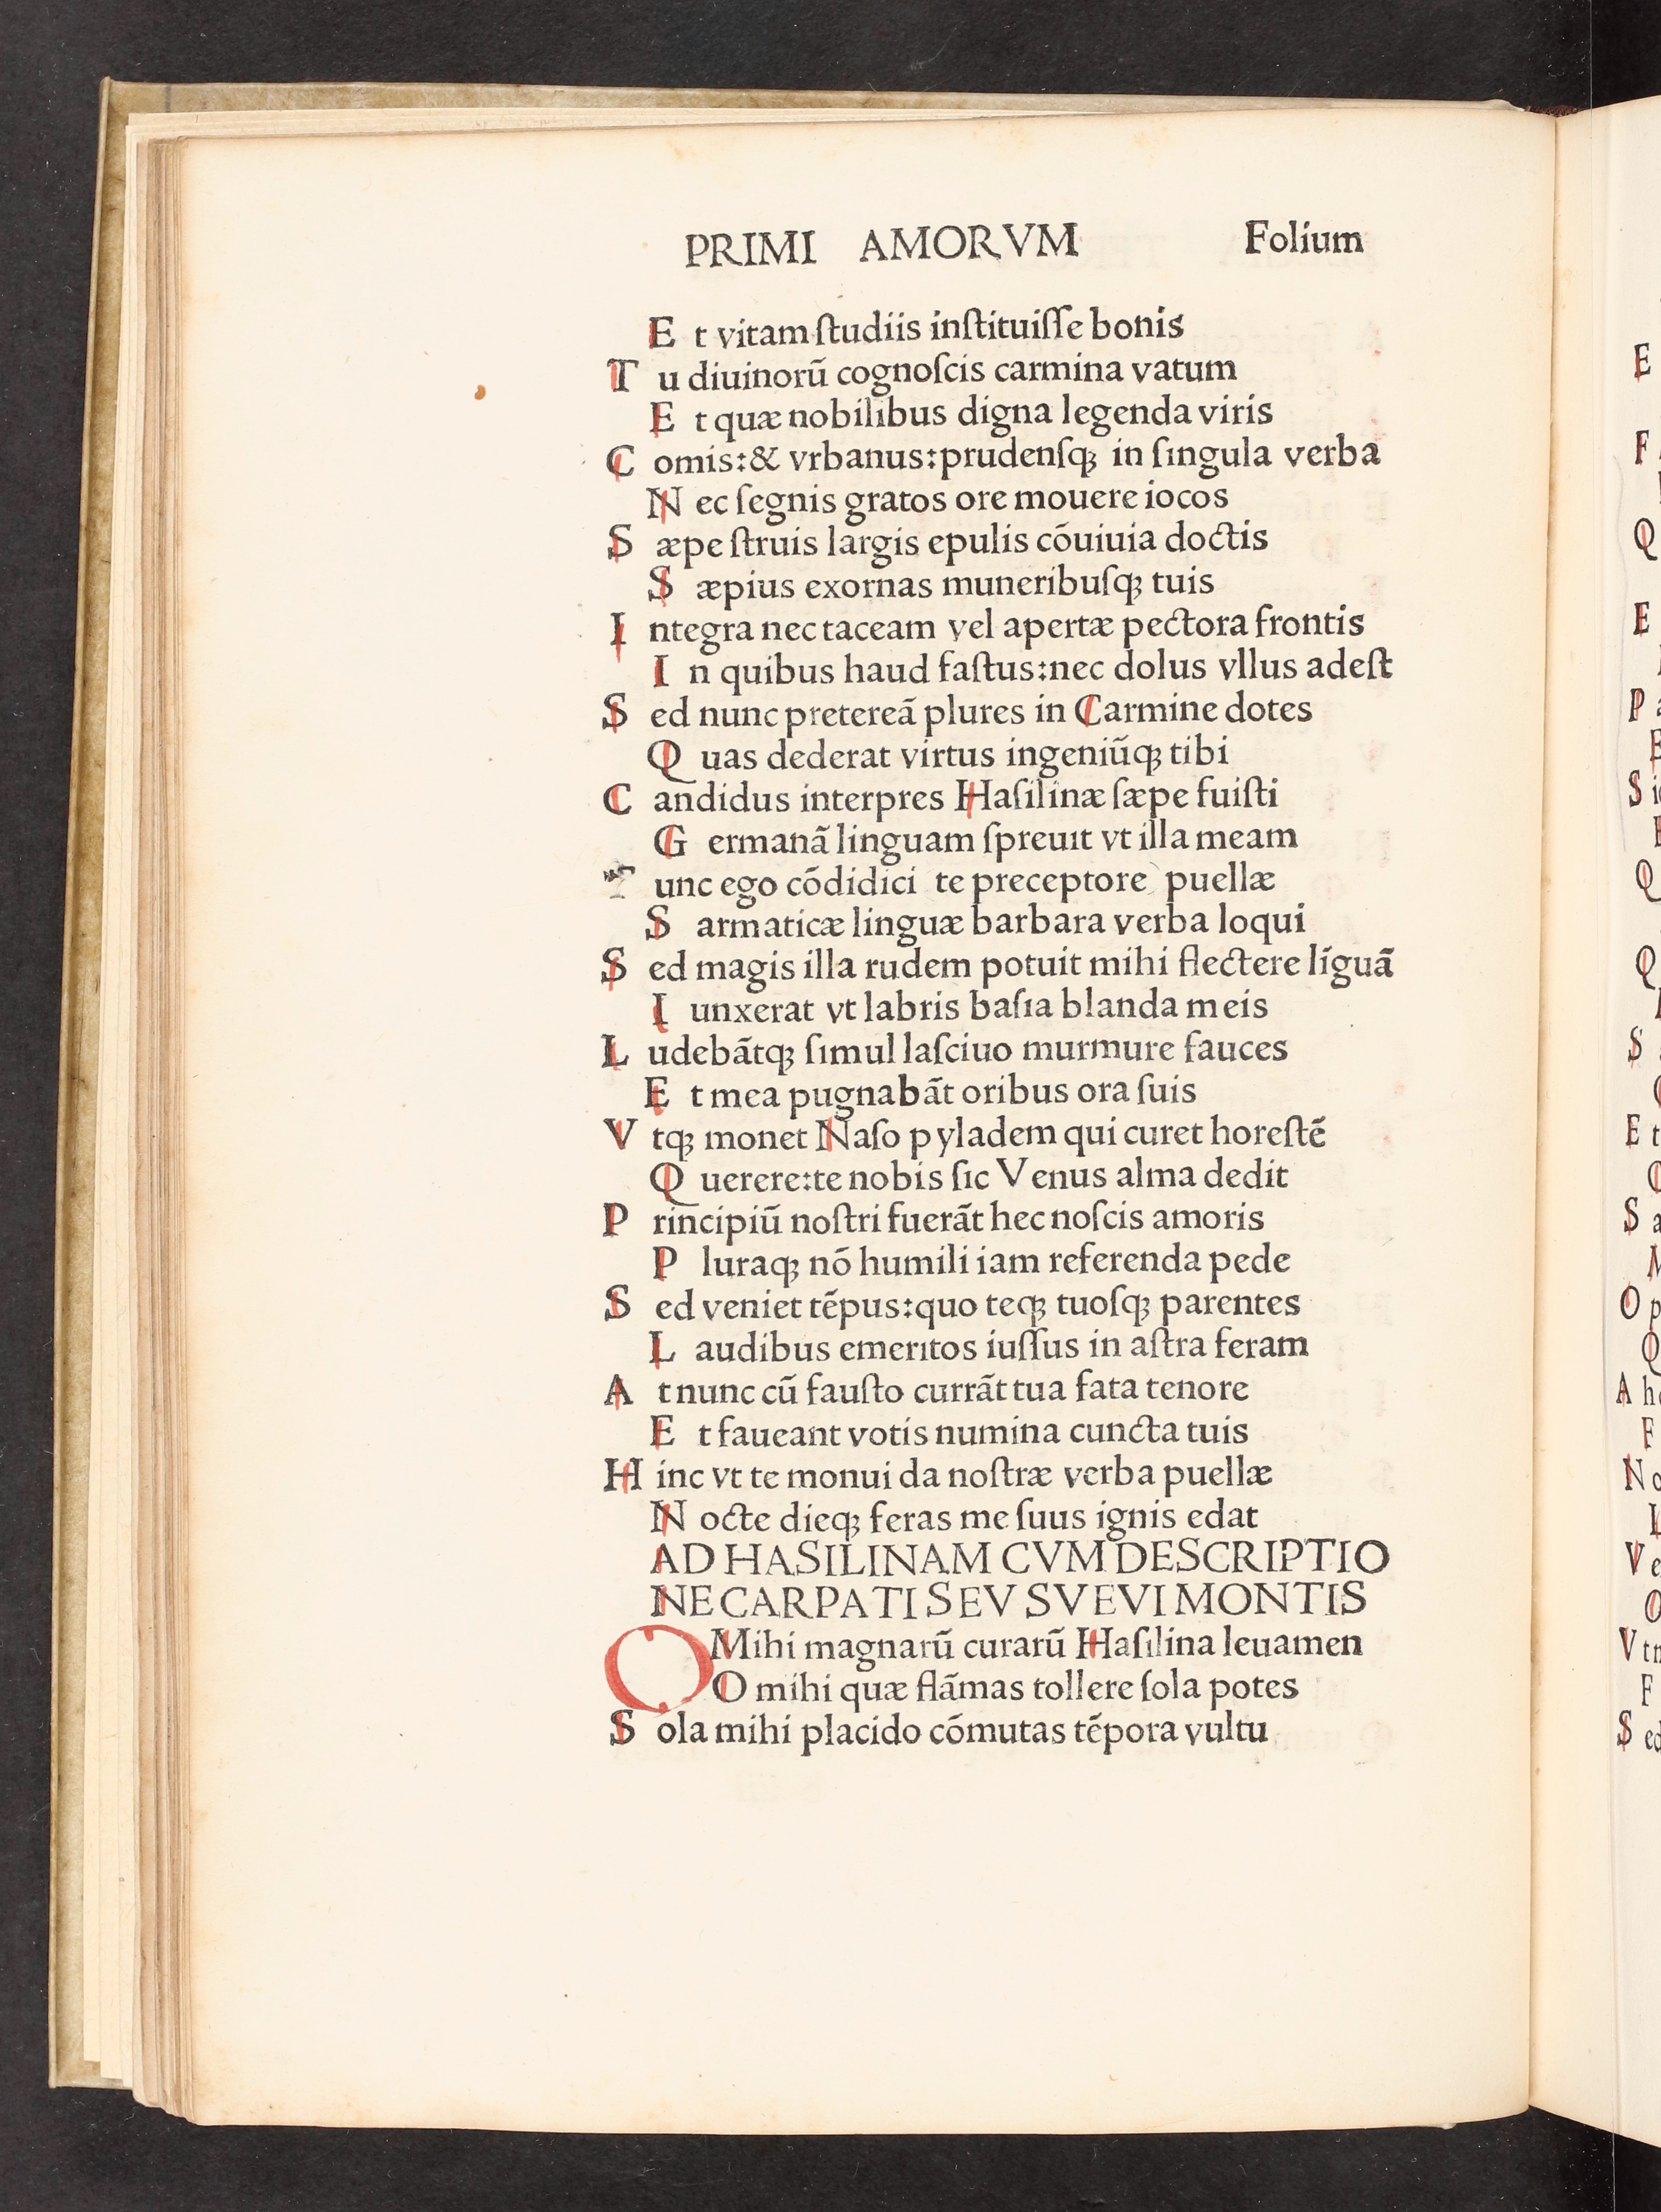 PRIMI AMORVM Folium
E t vitam ſtudiis inſtituiſſe bonis
T u diuinorũ cognoſcis carmina vatum
E t quæ nobilibus digna legenda viris
C omis:& vrbanus:prudenſꝗ in ſingula verba
N ec ſegnis gratos ore mouere iocos
S æpe ſtruis largis epulis cõuiuia doctis
S æpius exornas muneribuſꝗ tuis
I ntegra nec taceam vel apertæ pectora frontis
I n quibus haud faſtus:nec dolus vllus adeſt
S ed nunc pretereã plures in Carmine dotes
Q uas dederat virtus ingeniũꝗ tibi
C andidus interpres Haſilinæ ſæpe fuiſti
G ermanã linguam ſpreuit vt illa meam
T unc ego cõdidici te preceptore puellæ
S armaticæ linguæ barbara verba loqui
S ed magis illa rudem potuit mihi flectere lĩguã
I unxerat vt labris baſia blanda meis
L udebãtꝗ ſimul laſciuo murmure fauces
E t mea pugnabãt oribus ora ſuis
V tꝗ monet Naſo pyladem qui curet horeſtẽ
Q uerere:te nobis ſic Venus alma dedit
P rincipiũ noſtri fuerãt hec noſcis amoris
P luraꝗ nõ humili iam referenda pede
S ed veniet tẽpus:quo teꝗ tuoſꝗ parentes
L audibus emeritos iuſſus in aſtra feram
A t nunc cũ fauſto currãt tua fata tenore
E t faueant votis numina cuncta tuis
H inc vt te monui da noſtræ verba puellæ
N octe dieꝗ feras me ſuus ignis edat
AD HASILINAM CVM DESCRIPTIO
NE CARPATI SEV SVEVI MONTIS
O Mihi magnarũ curarũ Haſilina leuamen
O mihi quæ flãmas tollere ſola potes
S ola mihi placido cõmutas tẽpora vultu